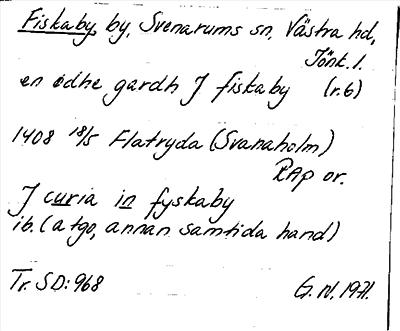 Fiskaby, by, Svenarums sn, Västra hd,
Jönk. l.
en ødhe gardh J fiskaby (r. 6)
1408 18/5 Flatryda (Svanaholm)
RAp or.
J curia in fyskaby
ib. (a tgo, annan samtida hand)
Tr. SD: 968 G. N. 1971.